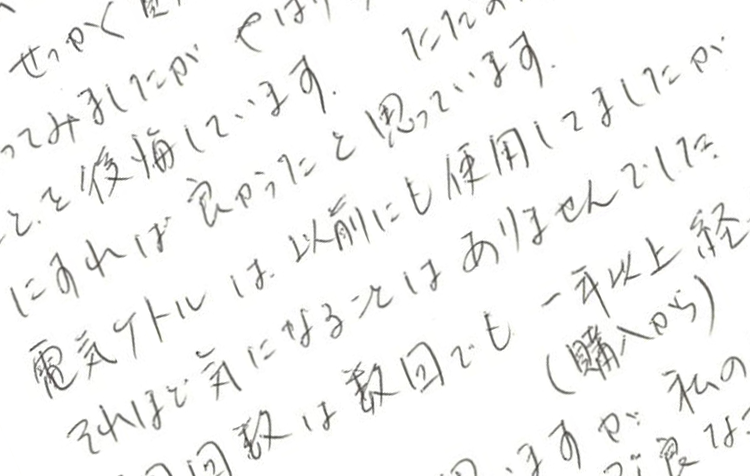 せっかく買
ってみましたが やはり
とを後悔しています. ただの
にすれば良かったと思っています.
電気ケトルは以前にも使用してましたが
それほど気になることはありませんでした.
回数は数回でも 一年以上 経
(購入から)
いますが 私の
良な